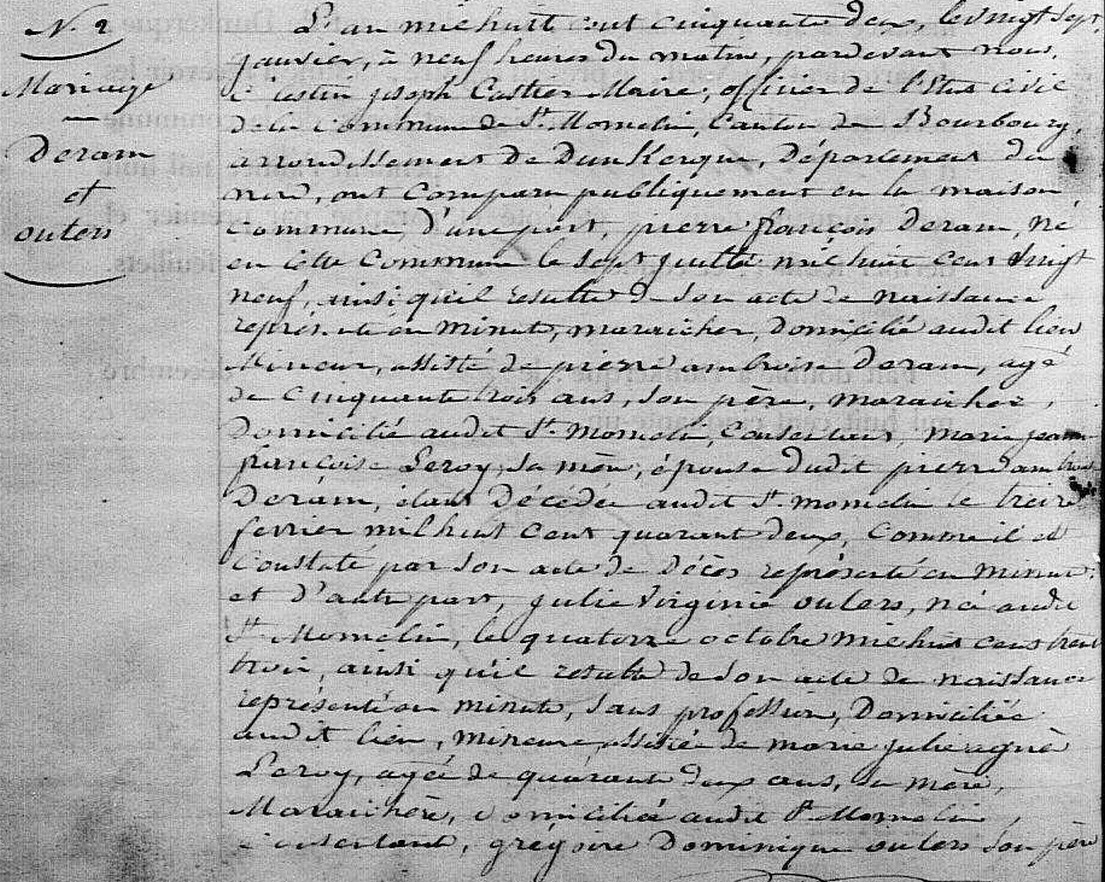 N. 2
Mariage
Deram
et
outers
L'an mil huit cent cinquante deux, le vingt sept
janvier, à neuf heures du matin, pardevant nous,
joseph Castier Maire, officier de l'Etat Civil
de la Commune de St. Momelin, Canton de Bourbourg,
arrondissement de DunKerque, Département du
nord, ont Comparu publiquement en la maison
Commune, d'une part, pierre françois Deram, né
en cette Commune le sept juillet mil huit cent vingt
neuf, ainsi qu'il resulte de son acte de naissance
représenté en minute, maraicher, Domicilié audit lieu
Mineur, assisté de pierre ambroise Deram, agé
de Cinquante trois ans, son père, maraicher,
Domicilié audit St. Momelin, Consentant, marie jeanne
françoise Leroy, sa mère, épouse dudit pierre ambroise
Deram, étant Décédée audit St. momelin le treize
fevrier mil huit Cent quarant deux, Comme il est
Constaté par son acte de Décès représenté en minute:
et D'autre part, julie Virginie outers, née audit
St. Momelin, le quatorze octobre mil huit cent trent
trois, ainsi qu'il resulte de son acte de naissance
représenté en minute, sans profession, Domiciliée
audit lieu, mineure, assistée de marie julie agnè
Leroy, agée de quarante deux ans, sa mère,
Maraichère, domiciliée audit St. Momelin,
Consentant, grégoire Dominique outers son père